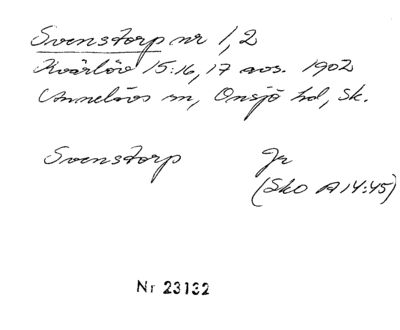 Svenstorp nr 1,2
Kvärlöv 15:16, 17 avs. 1902
Annelövs sn, Onsjö hd, Sk.
Svenstorp Jr
(Sko A14:45)
Nr 23132